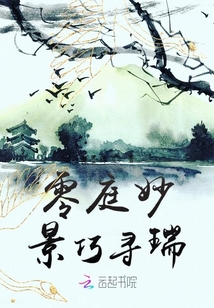 零庭妙
景巧寻瑞
云起书院